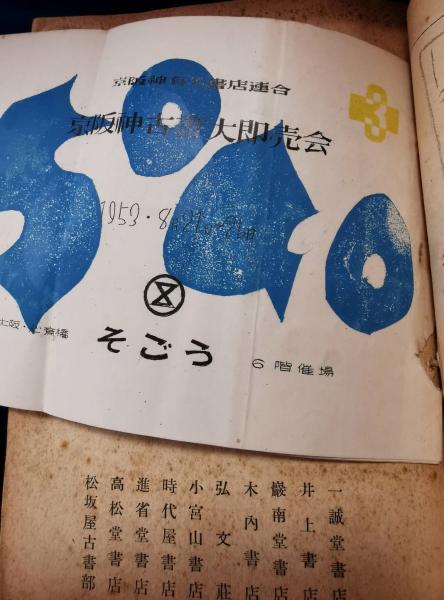 京阪神有名書店連合
3
京阪神古書大即売会
大阪・心斎橋
そごう
6階催場
一誠堂書店
井上書店
巖南堂書店
木内書店
弘文荘
小宮山書店
時代屋書店
進省堂書店
高松堂書店
松坂屋古書部